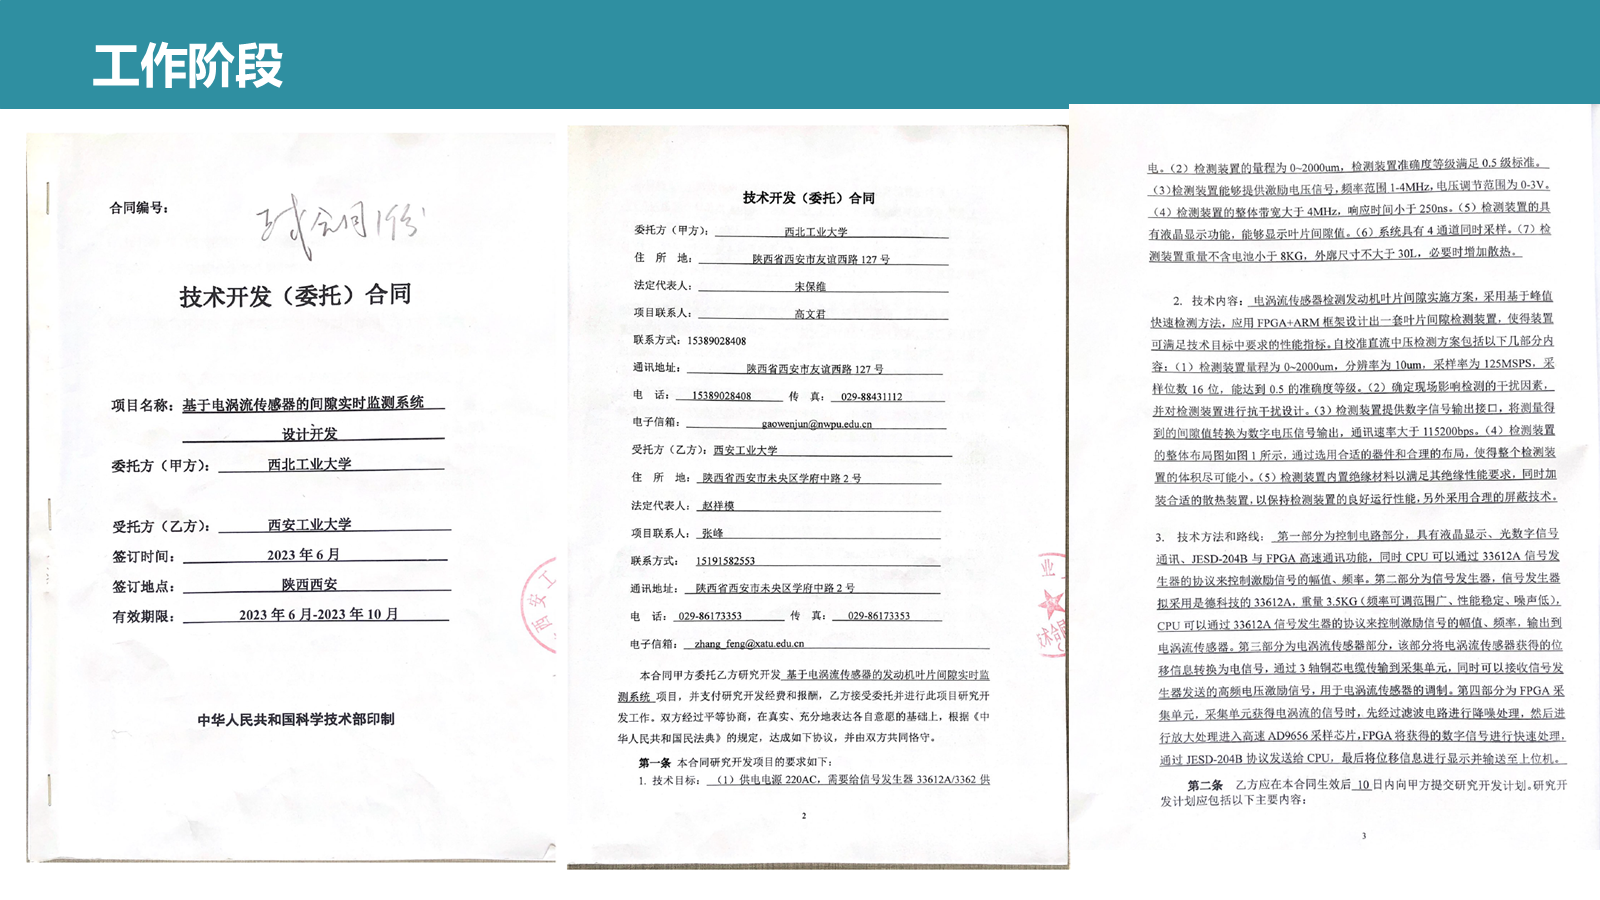 工作阶段
合同编号：
合同1份
技术开发（委托）合同
项目名称：基于电涡流传感器的间隙实时监测系统
设计开发
委托方（甲方）：西北工业大学
受托方（乙方）：西安工业大学
签订时间：2023 年 6 月
签订地点：陕西西安
有效期限：2023 年 6 月-2023 年 10 月
中华人民共和国科学技术部印制
西安工
技术开发（委托）合同
委托方（甲方）：西北工业大学
住 所 地：陕西省西安市友谊西路 127 号
法定代表人：宋保维
项目联系人：高文君
联系方式：15389028408
通讯地址：陕西省西安市友谊西路 127 号
电 话：15389028408 传 真：029-88431112
电子信箱：gaowenjun@nwpu.edu.cn
受托方（乙方）：西安工业大学
住 所 地：陕西省西安市未央区学府中路 2 号
法定代表人：赵祥模
项目联系人：张峰
联系方式：15191582553
通讯地址：陕西省西安市未央区学府中路 2 号
电 话：029-86173353 传 真：029-86173353
电子信箱：zhang_feng@xatu.edu.cn
本合同甲方委托乙方研究开发 基于电涡流传感器的发动机叶片间隙实时监
测系统 项目，并支付研究开发经费和报酬，乙方接受委托并进行此项目研究开
发工作。双方经过平等协商，在真实、充分地表达各自意愿的基础上，根据《中
华人民共和国民法典》的规定，达成如下协议，并由双方共同恪守。
第一条 本合同研究开发项目的要求如下：
1. 技术目标：（1）供电电源 220AC，需要给信号发生器 33612A/3362 供
2
电。（2）检测装置的量程为 0~2000um，检测装置准确度等级满足 0.5 级标准。
（3）检测装置能够提供激励电压信号，频率范围 1-4MHz，电压调节范围为 0-3V。
（4）检测装置的整体带宽大于 4MHz，响应时间小于 250ns。（5）检测装置的具
有液晶显示功能，能够显示叶片间隙值。（6）系统具有 4 通道同时采样。（7）检
测装置重量不含电池小于 8KG，外廓尺寸不大于 30L，必要时增加散热。
2. 技术内容：电涡流传感器检测发动机叶片间隙实施方案，采用基于峰值
快速检测方法，应用 FPGA+ARM 框架设计出一套叶片间隙检测装置，使得装置
可满足技术目标中要求的性能指标。自校准直流中压检测方案包括以下几部分内
容：（1）检测装置量程为 0~2000um，分辨率为 10um，采样率为 125MSPS，采
样位数 16 位，能达到 0.5 的准确度等级。（2）确定现场影响检测的干扰因素，
并对检测装置进行抗干扰设计。（3）检测装置提供数字信号输出接口，将测量得
到的间隙值转换为数字电压信号输出，通讯速率大于 115200bps。（4）检测装置
的整体布局图如图 1 所示，通过选用合适的器件和合理的布局，使得整个检测装
置的体积尽可能小。（5）检测装置内置绝缘材料以满足其绝缘性能要求，同时加
装合适的散热装置，以保持检测装置的良好运行性能，另外采用合理的屏蔽技术。
3. 技术方法和路线：第一部分为控制电路部分，具有液晶显示、光数字信号
通讯、JESD-204B 与 FPGA 高速通讯功能，同时 CPU 可以通过 33612A 信号发
生器的协议来控制激励信号的幅值、频率。第二部分为信号发生器，信号发生器
拟采用是德科技的 33612A，重量 3.5KG（频率可调范围广、性能稳定、噪声低），
CPU 可以通过 33612A 信号发生器的协议来控制激励信号的幅值、频率，输出到
电涡流传感器。第三部分为电涡流传感器部分，该部分将电涡流传感器获得的位
移信息转换为电信号，通过 3 轴铜芯电缆传输到采集单元，同时可以接收信号发
生器发送的高频电压激励信号，用于电涡流传感器的调制。第四部分为 FPGA 采
集单元，采集单元获得电涡流的信号时，先经过滤波电路进行降噪处理，然后进
行放大处理进入高速 AD9656 采样芯片，FPGA 将获得的数字信号进行快速处理，
通过 JESD-204B 协议发送给 CPU，最后将位移信息进行显示并输送至上位机。
第二条 乙方应在本合同生效后 10 日内向甲方提交研究开发计划。研究开
发计划应包括以下主要内容：
3